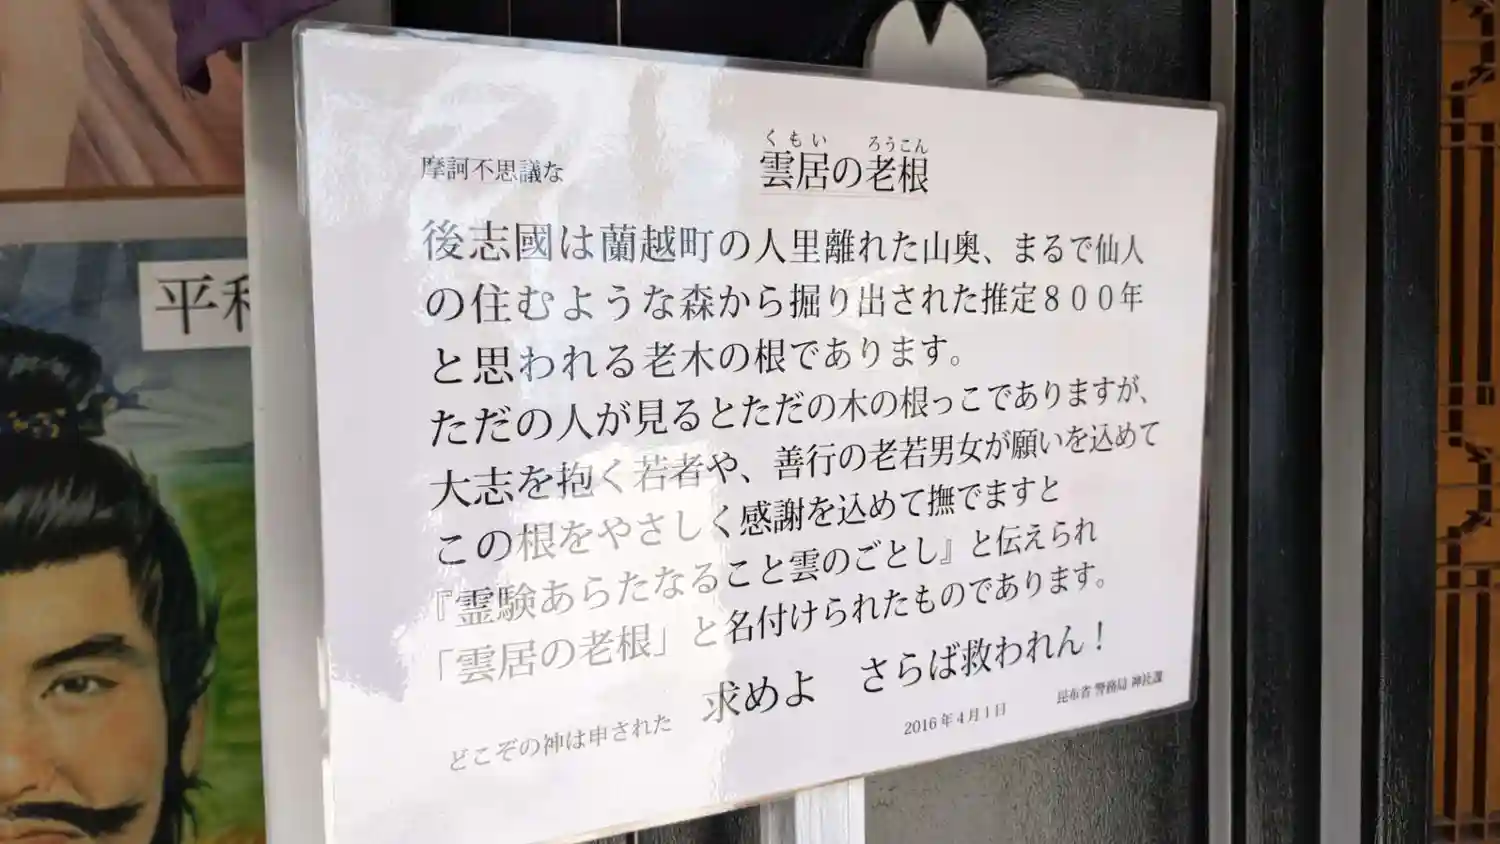 摩訶不思議な
くもい ろうこん
雲居の老根
後志國は蘭越町の人里離れた山奥、まるで仙人
の住むような森から掘り出された推定８００年
と思われる老木の根であります。
ただの人が見るとただの木の根っこでありますが、
大志を抱く若者や、善行の老若男女が願いを込めて
この根をやさしく感謝を込めて撫でますと
『霊験あらたなること雲のごとし』と伝えられ
「雲居の老根」と名付けられたものであります。
どこぞの神は申された
求めよ さらば救われん！
2016年4月1日
昆布省 警務局 神社課
平和